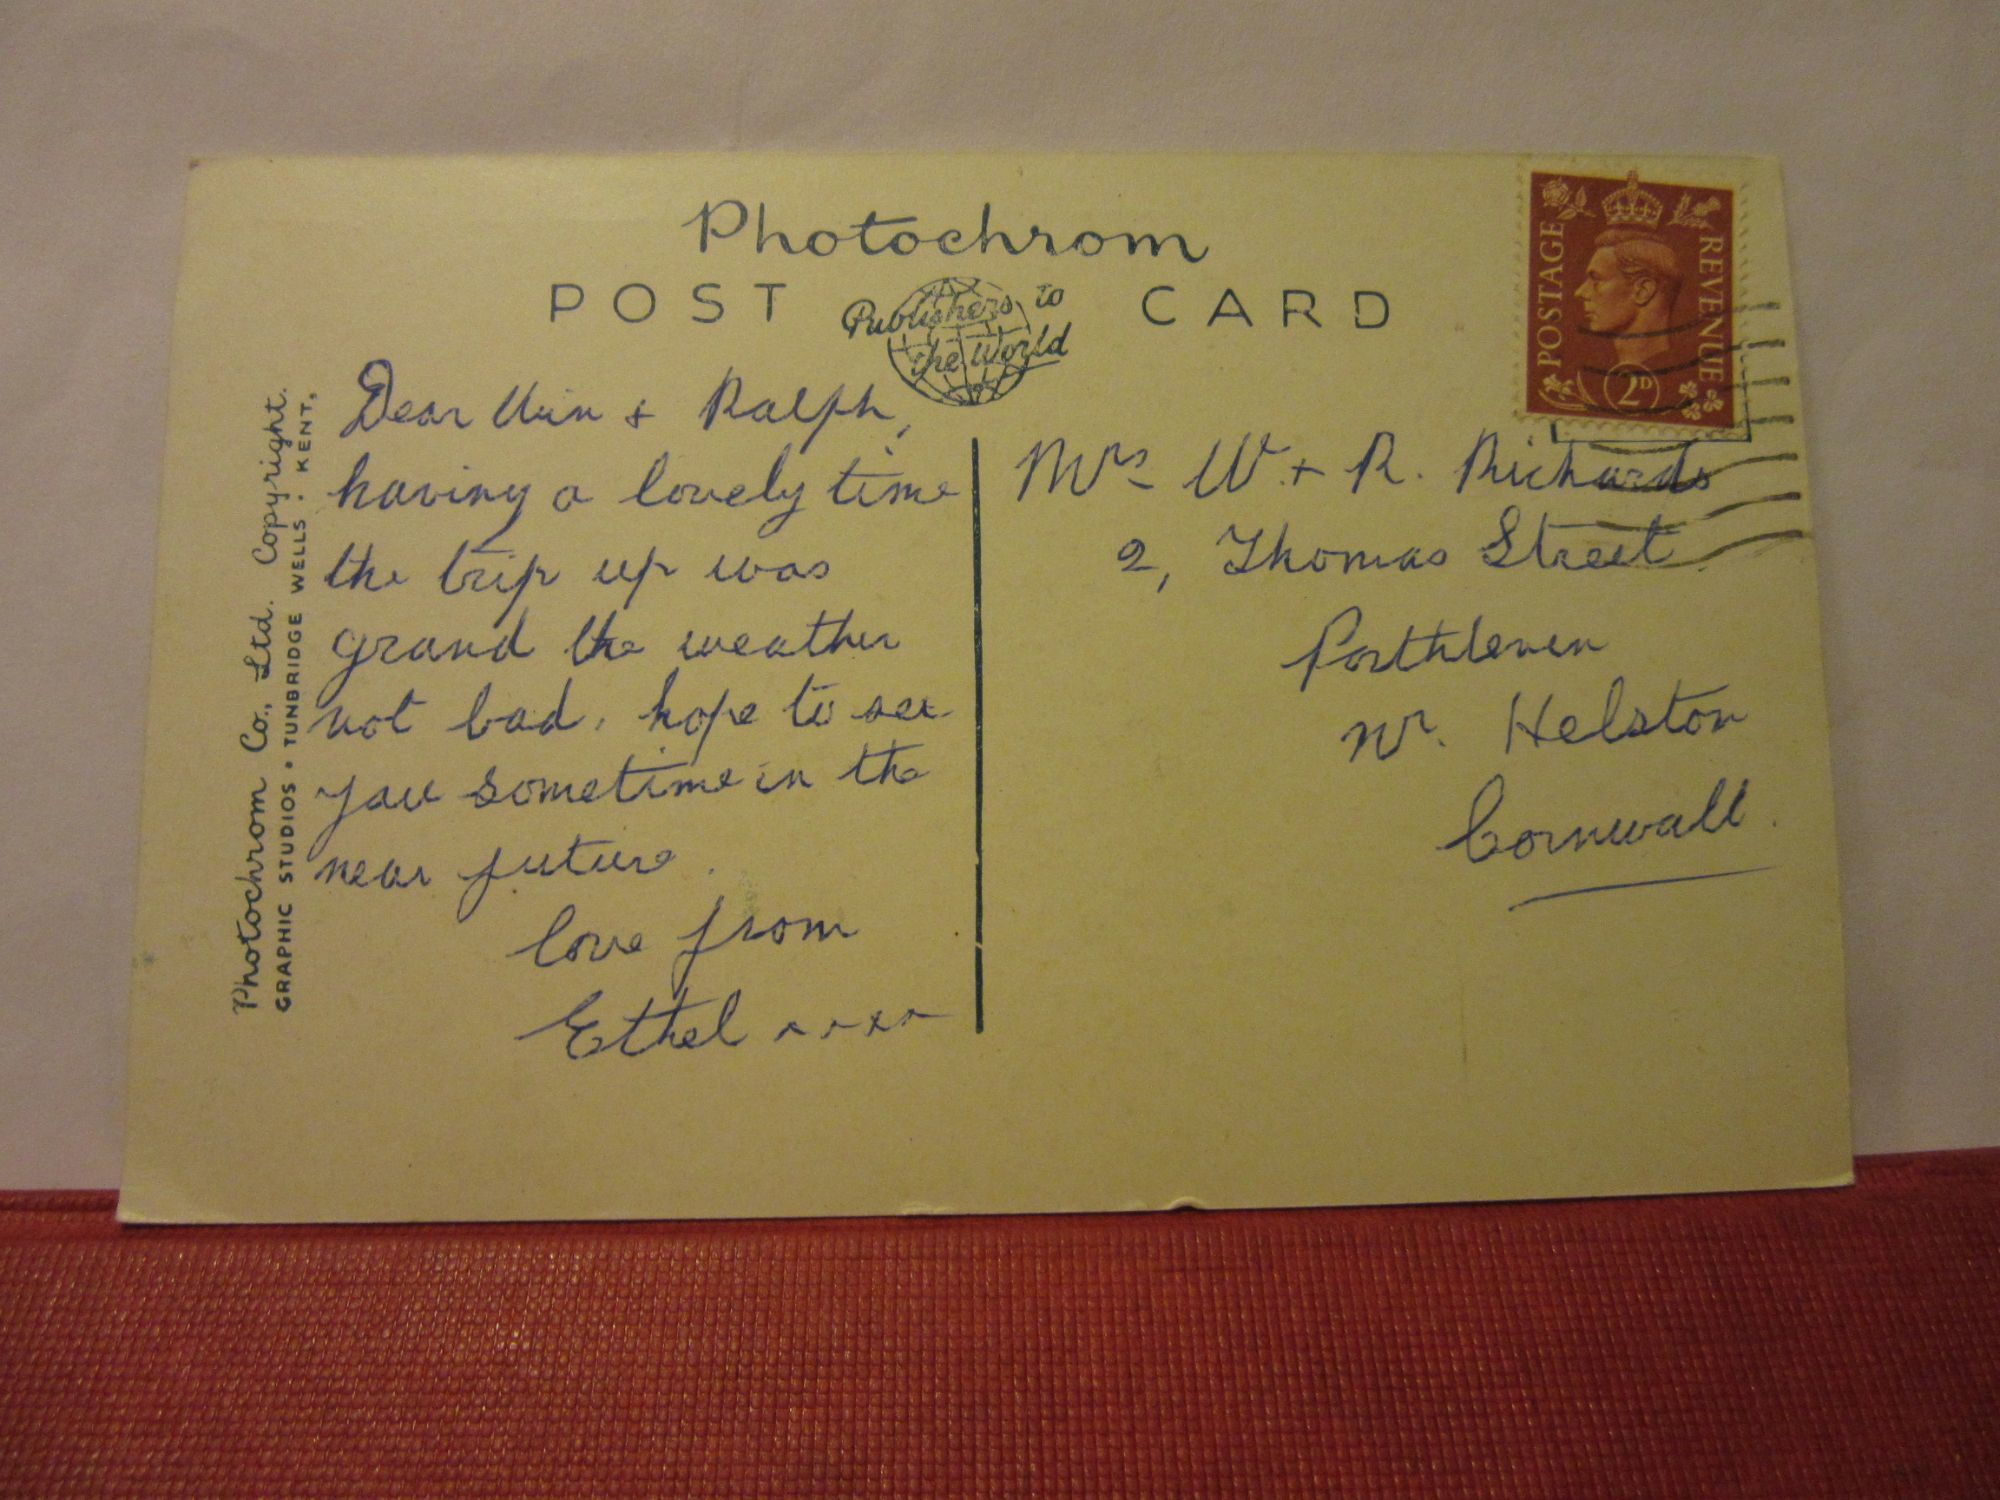 Photochrom
POST CARD
Publishers to
the World
POSTAGE
REVENUE
2D
Photochrom Co., Ltd. Copyright.
GRAPHIC STUDIOS • TUNBRIDGE WELLS. KENT.
Dear Win + Ralph,
having a lovely time
the trip up was
grand the weather
not bad, hope to see
you sometime in the
near future.
love from
Ethel xxxx
Mrs W. + R. Richards
2, Thomas Street
Porthleven
Nr. Helston
Cornwall.